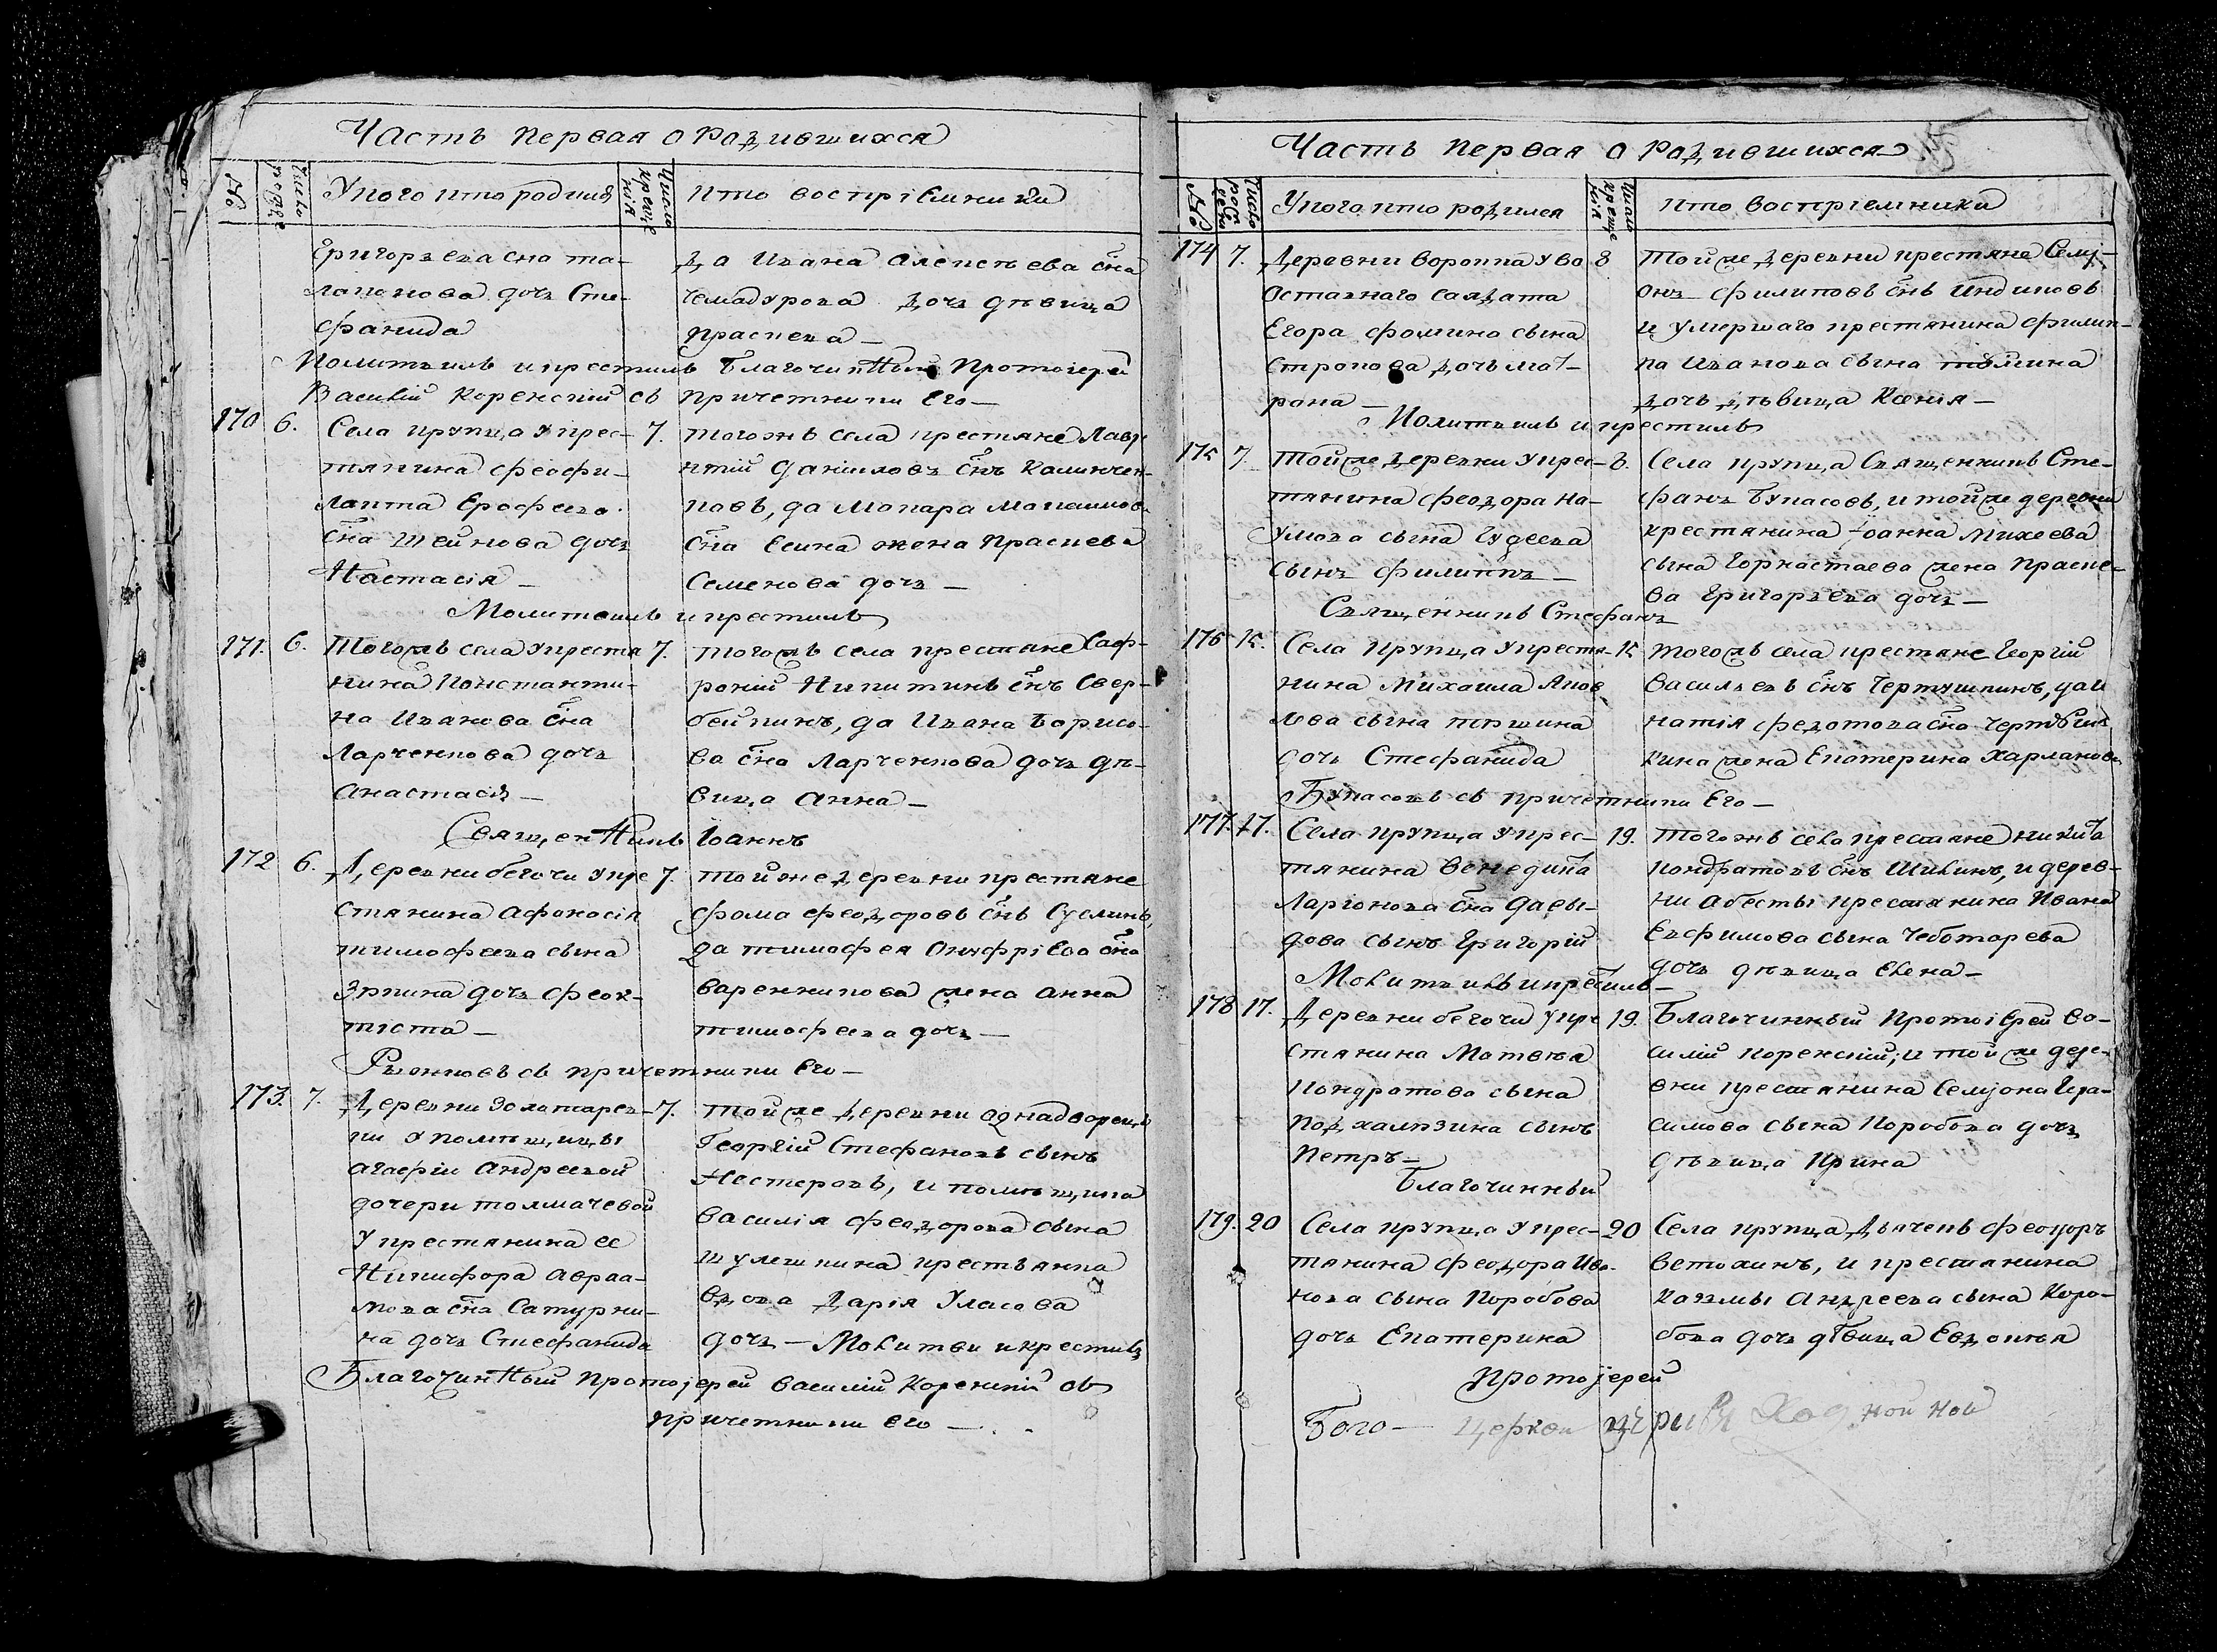 Часть первая о родившихся
№
Число рожде
У кого кто родился
Число креще нія
кто воспріемники
Григорьева сна та-
лаконова дочь Сте-
фанида
да Ивана Алексеева сна
Чемадурова дочь дѣвица
Праскева —
Молитвилъ и крестилъ Благочинный Протоіерей
Василій Коренскій съ причетники Его —
170 6. Села крупца у крес- 7.
тянина Феофи-
лакта Ерофеева
сна Шейнова дочь
Настасія —
тогожъ села крестяне Лавре
нтій Даниловъ снъ Калинчен-
ковъ, да Макара Макашинов.
сна Есина жена Праскева
Семенова дочь —
Молитвилъ и крестилъ
171. 6. Тогожъ села у крестя 7.
нина Константи-
на Иванова сна
Ларченкова дочь
Анастасія —
тогожъ села крестяне Саф-
роній Никитинъ снъ Свер-
бейкинъ, да Ивана Борисо-
ва сна Ларченкова дочь дѣ-
вица Анна —
Священникъ Іоаннъ
172 6. Деревни бегочи у кре 7.
стянина Афонасія
тимофеева сына
Зркина дочь Феок-
тіста —
той же деревни крестяне
Фома Феодоровъ снъ Суслинъ,
да тимофея Онуфріева сна
Варенникова жена Анна
тимофеева дочь —
съ причетники Его —
173. 7. Деревни Золатарев- 7.
ки у помѣщицы
Агафіи Андреевой
дочери толмачевой
у крестянина ее
Никифора Авраа-
мова сна Сатурни-
на дочь Стефанида
той же деревни однадворецъ
Георгій Стефановъ сынъ
Нестеровъ, и помѣщика
Василія Феодорова сына
Шулешкина крестьянка
вдова Дарія Уласова
дочь — Молитви и крестилъ
Благочинный протоіерей Василій Коренскій съ
причетники его —
Часть первая о родившихся
№
Число рож дени
У кого кто родился
Число креще нія
кто воспріемники
174 7. Деревни воропка у во 8
оставнаго салдата
Егора Фомина сына
Строкова дочь мат-
рона —
той же деревни крестяне Семі-
онъ Филиповъ снъ Индиковъ
и умершаго крестянина Филип-
па Иванова сына томина
дочь дѣвица Ксенія —
Молитвилъ и крестилъ
175 7. той же деревни у крес- 8.
тянина Феодора На-
умова сына Гудеева
сынъ Филиппъ —
Села крупца Священникъ Сте-
фанъ Букасовъ, и той же деревни
крестянина Іоанна Михеева
сына Горнастаева жена Праске-
ва Григорьева дочь —
Священникъ Стефанъ
176 15. Села крупца у крестя- 15
нина Михаила Яков
лева сына
дочь Стефанида
тогожъ села крестяне Георгій
Васильевъ снъ Чертушкинъ, да И
натія Федотова сна
кина жена Екатерина Харланова
Букасовъ съ причетники Его —
177. 17. Села крупца у крес- 19.
тянина Венедикта
Ларіонова сна Давы-
дова сынъ Григорій
тогожъ села крестяне Никита
Кондратовъ снъ Шилинъ, и дерев-
ни Абесты крестянина Ивана
Евфимова сына Чеботарева
дочь дѣвица Елена —
Молитвилъ и крестилъ —
178 17. Деревни бегочи у кре 19.
стянина Матвѣя
Кондратова сына
Подхалюзина сынъ
Петръ —
Благочинный Протоіерей Ва-
силій Коренскій, и той же дере-
вни крестянина Семіона Гера-
симова сына Коробова дочь
дѣвица Ирина
Благочинный
179. 20 Села крупца у крес- 20
тянина Феодора Ива-
нова сына Коробова
дочь Екатерина
Села крупца Дьячекъ Феодоръ
Ветохинъ, и крестянина
Козмы Андреева сына Коро-
бова дочь дѣвица Евдокія
протоіерей
Бого — церкви